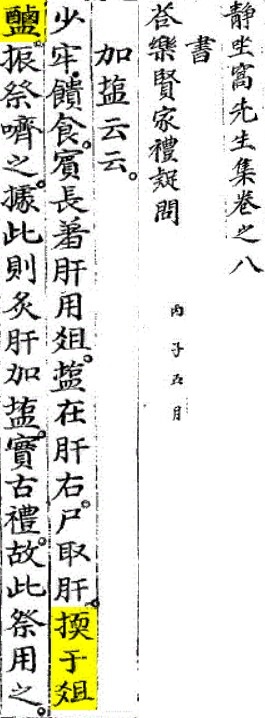 靜坐窩先生集卷之八
書
荅樂賢家禮疑問 丙子五月
加塩云云。
少牢饋食。賓長羞肝用爼。塩在肝右。尸取肝。㨎于爼
鹽。振祭嚌之。據此則炙肝加塩。實古禮。故此祭用之。